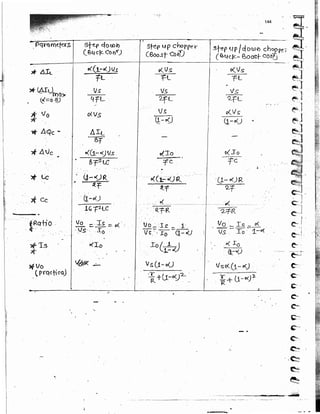 144
Parameters | Step down (Buck Conv) | Step up chopper (Boost Conv) | Step up/down chopper (Buck-Boost Conv)
* ΔIL | α(1-α)Vs / fL | αVs / fL | αVs / fL
* (ΔIL)max | Vs / 4fL | Vs / 2fL | Vs / 2fL
* Vo | αVs | Vs / (1-α) | αVs / (1-α)
* ΔQc | ΔIL / 8f | — | —
* ΔVc | α(1-α)Vs / 8f²LC | αIo / fC | αIo / fC
* Lc | (1-α)R / 2f | α(1-α)R / 2f | (1-α)R / 2f
* Cc | (1-α) / 16f²LC | α / 2fR | α / 2fR
Ratio | Vo/Vs = Is/Io = α | Vo/Vs = Is/Io = 1/(1-α) | Vo/Vs = Is/Io = α/(1-α)
* Is | αIo | Io(1/(1-α)) | αIo / (1-α)
* Vo (practical) | Vs(1-α) / r/R + (1-α)² | Vsα(1-α) / r/R + (1-α)²